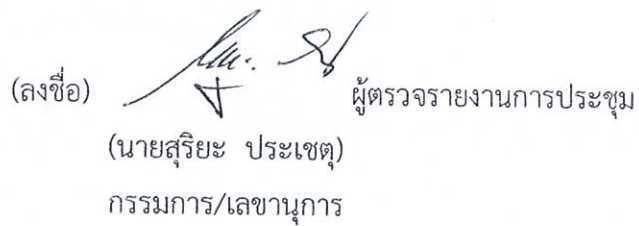 (ลงชื่อ) ผู้ตรวจรายงานการประชุม
(นายสุริยะ ประเชตุ)
กรรมการ/เลขานุการ